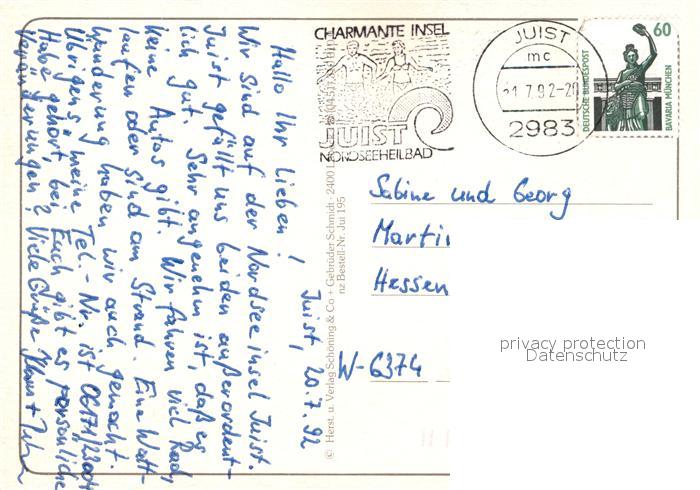 CHARMANTE INSEL
JUIST
NORDSEEHEILBAD
JUIST
mc
21.7.92-20
2983
60
DEUTSCHE BUNDESPOST
BAVARIA MÜNCHEN
Juist, 20.7.92
Hallo Ihr Lieben!
Wir sind auf der Nordseeinsel Juist.
Juist gefällt uns beiden außerordent-
lich gut. Sehr angenehm ist, daß es
keine Autos gibt. Wir fahren viel Rad,
laufen oder sind am Strand. Eine Watt-
wanderung haben wir auch gemacht.
Übrigens, meine Tel.-Nr. ist 06171/23004
Habe gehört, bei Euch gibt es persönliche
Veränderungen? Viele Grüße
© Herst. u. Verlag Schöning & Co + Gebrüder Schmidt · 2400
nz Bestell-Nr. Jui 195
Sabine und Georg
Marti
Hessen
W-6374
privacy protection
Datenschutz